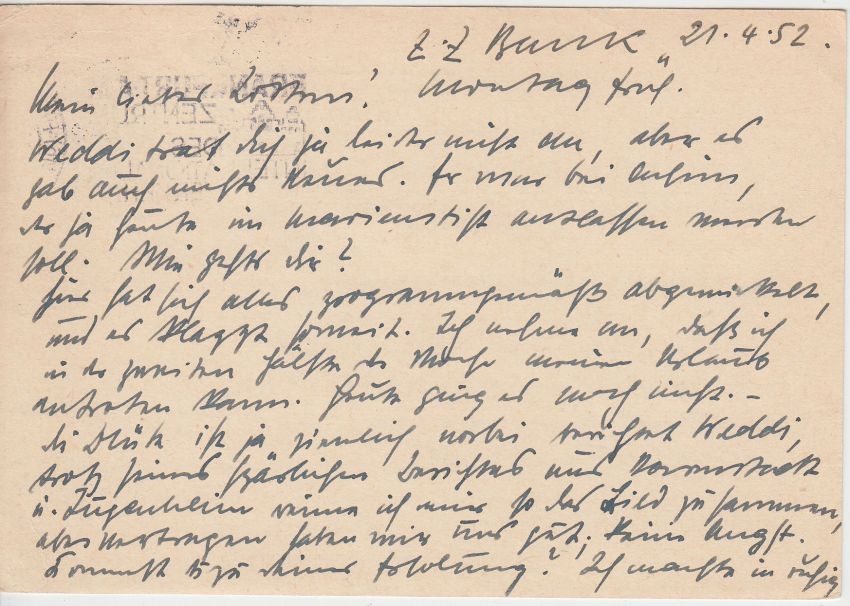 z. Z Bunk, 21.4.52.
Mein lieber! Montag früh.
Weddi traf dich ja leider nicht an, aber es
gab auch nichts Neues. Er war bei Achim,
der ja heute im Marienstift entlassen werden
soll. Wie gehts dir?
Hier hat sich alles programmgemäß abgewickelt,
und es klappt soweit. Ich nehme an, daß ich
in der zweiten Hälfte der Woche meinen Urlaub
antreten kann. Heute ging es noch nicht. –
die Blüte ist ja ziemlich vorbei berichtet Weddi,
trotz seines spärlichen Berichtes aus Darmstadt
u. Jugenheim reime ich mir so das Bild zusammen,
aber vertragen haben wir uns gut, keine Angst.
Kommst du zu deiner Erholung? Ich machte in ruhig